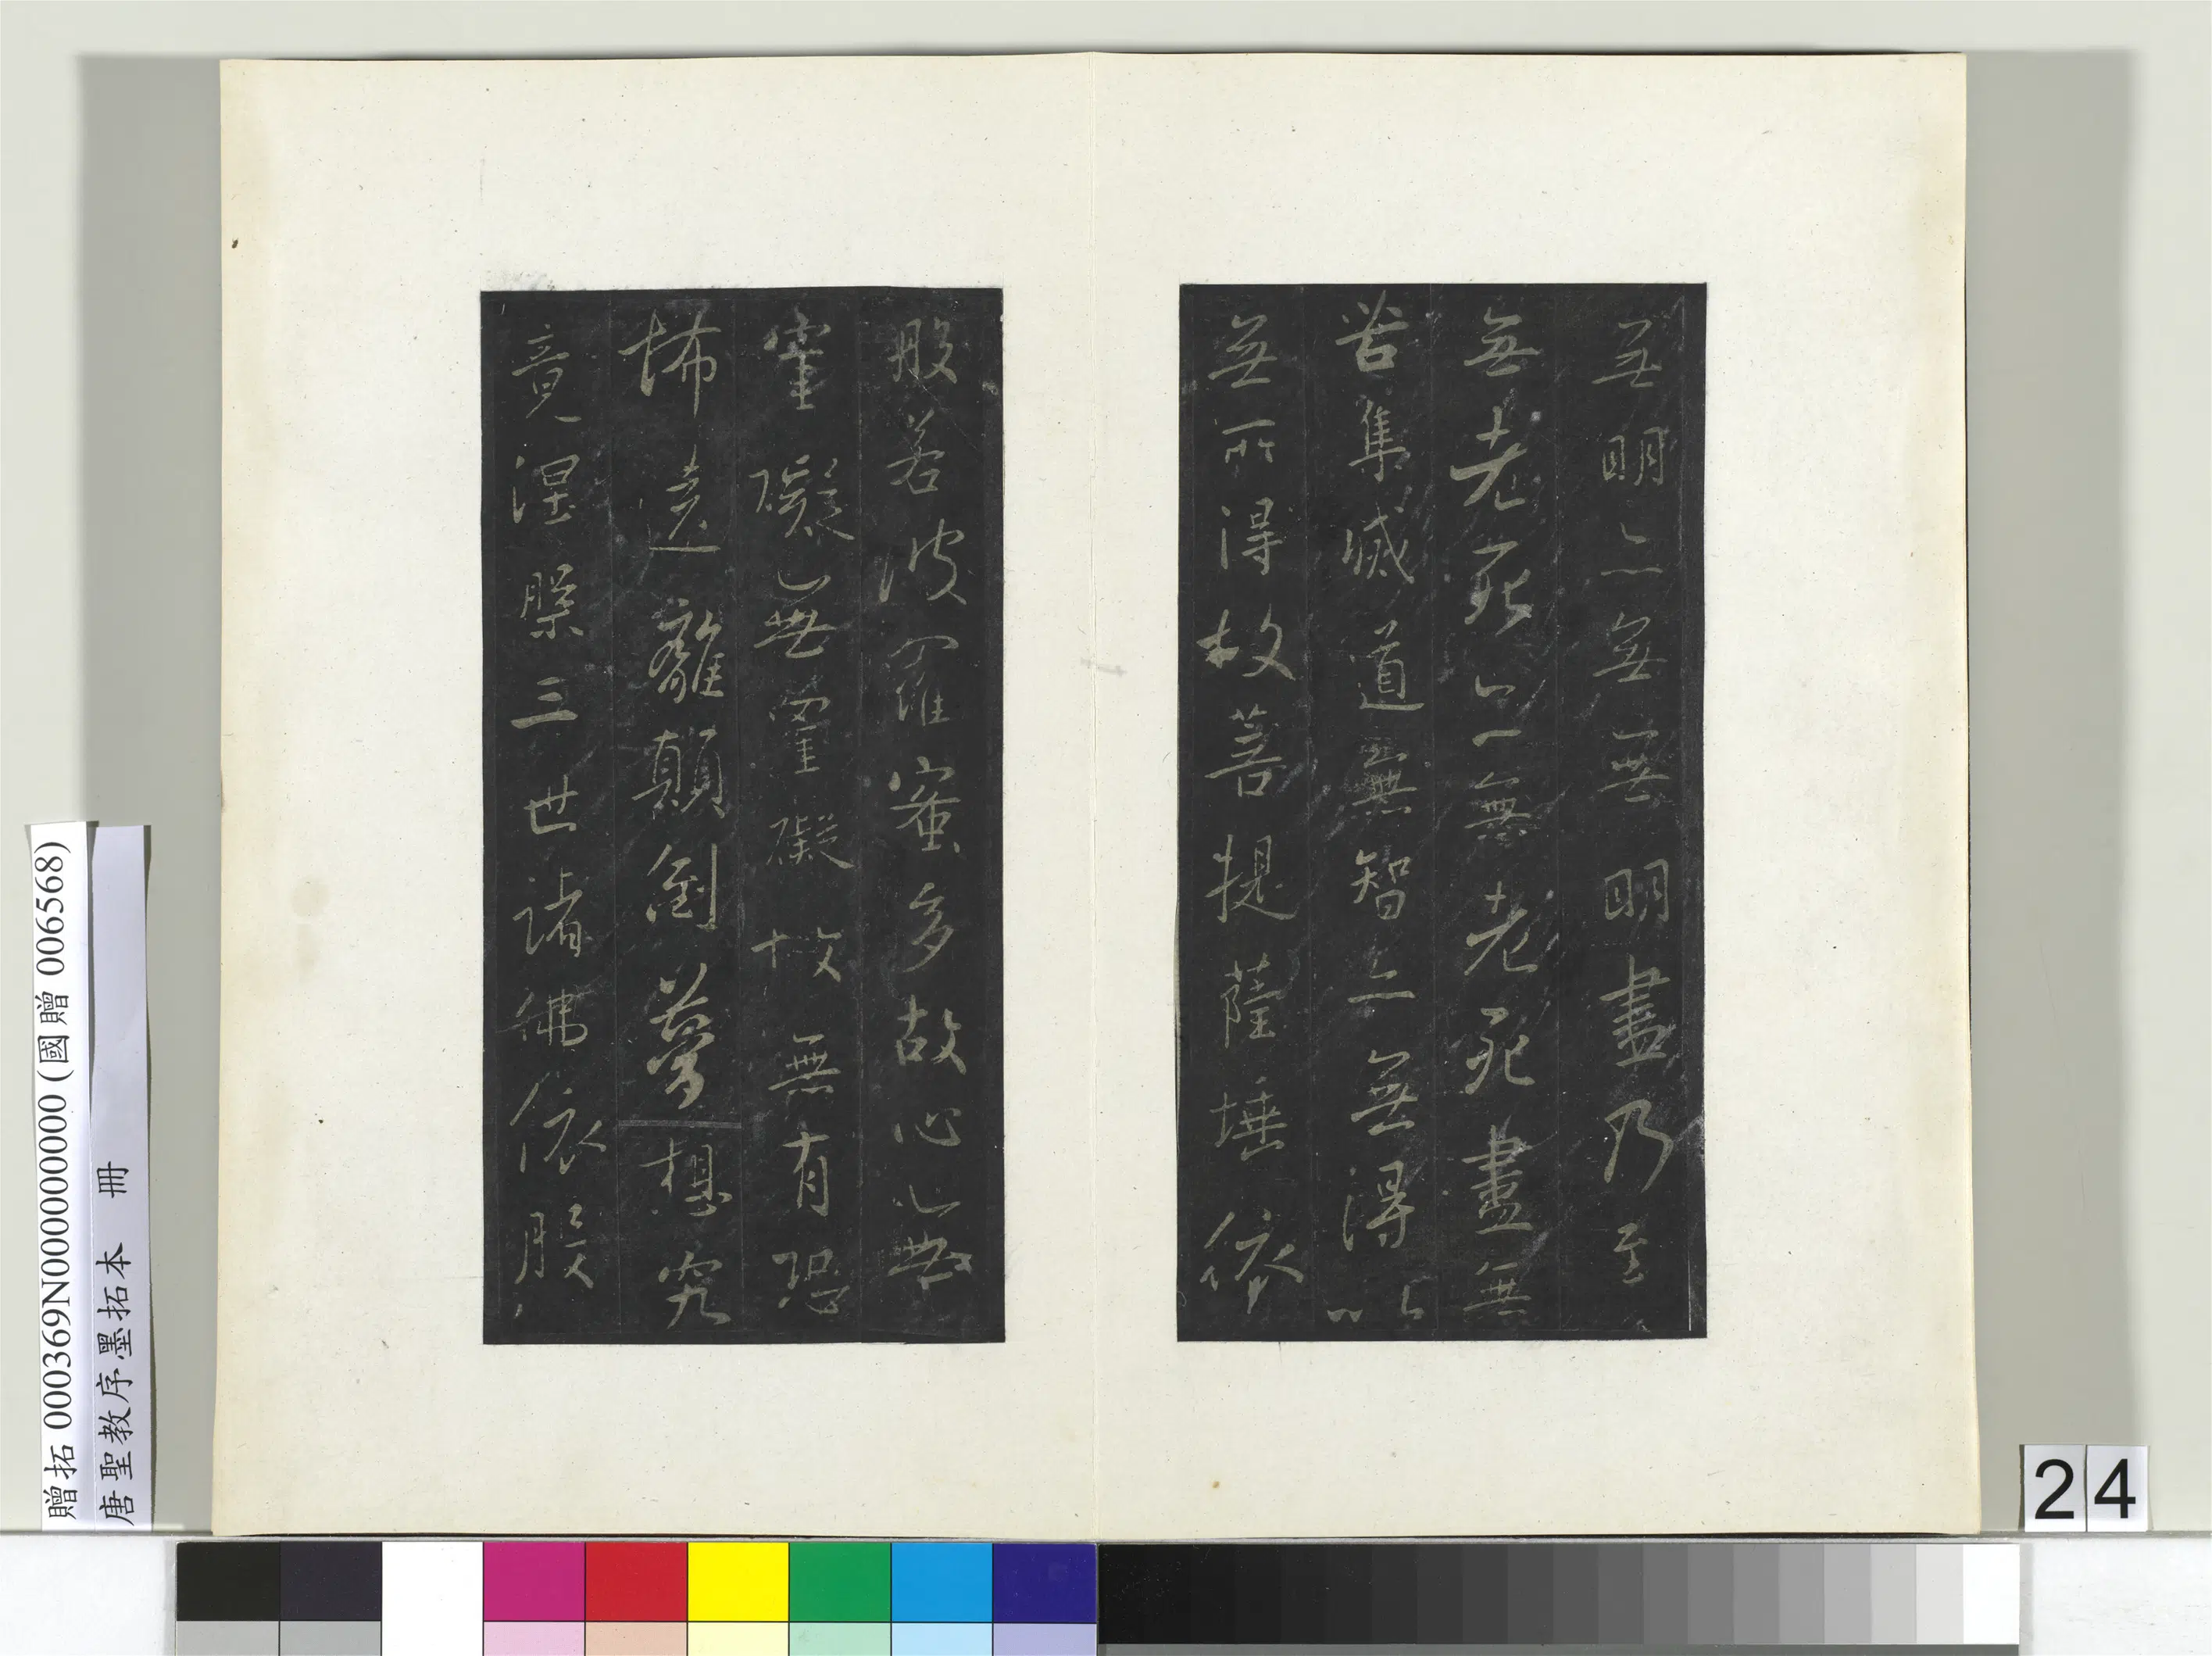 無明亦無無明盡乃至
無老死亦無老死盡無
苦集滅道無智亦無得以
無所得故菩提薩埵依
般若波羅蜜多故心無
罣礙無罣礙故無有恐
怖遠離顛倒夢想究
竟涅槃三世諸佛依般
贈拓 000369N000000000 (國贈 006568)
唐聖教序墨拓本 冊
24